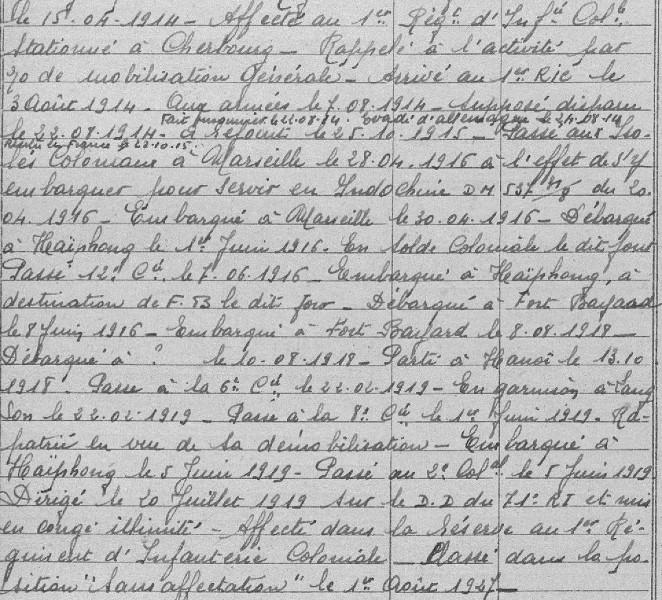 le 15.04.1914 - Affecté au 1er Régt d'Infie Colle
Stationné à Cherbourg - Rappelé à l'activité par
de mobilisation générale - Arrivé au 1er RIC le
3 Août 1914 - Aux armées le 7.08.1914 - Supposé disparu
Fait prisonnier le 22.08.14. Evadé d'allemagne le 24.08.14
le 22.08.1914 - a rejoint le 25.10.1915 - Passé aux Iso-
Rentré en France le 22.10.15.
lés Coloniaux à Marseille le 28.04.1916 à l'effet de s'y
embarquer pour servir en Indochine DM 537 du 20.
04.1916 - Embarqué à Marseille le 30.04.1916 - Débarqué
à Haïphong le 1er Juin 1916. En solde Coloniale le dit jour
Passé 12e Cie le 7.06.1916 - Embarqué à Haïphong, à
destination de F.B le dit jour - Débarqué à Fort Bayard
le 8 Juin 1916 - Embarqué à Fort Bayard le 8.08.1918 -
Débarqué à ? le 10.08.1918 - Parti à Hanoï le 13.10
1918 Passé à la 6e Cie le 22.02.1919 - En garnison à Lang
Son le 22.02.1919 - Passé à la 8e Cie le 1er Juin 1919. Ra-
patrié en vue de sa démobilisation - Embarqué à
Haïphong le 5 Juin 1919 - Passé au 2e Colal le 5 Juin 1919
Dirigé le 20 Juillet 1919 sur le D.D du 71e RI et mis
en congé illimité - Affecté dans la réserve au 1er Ré-
giment d'Infanterie Coloniale - Classé dans la po-
sition "Sans affectation" le 1er Août 1927 -